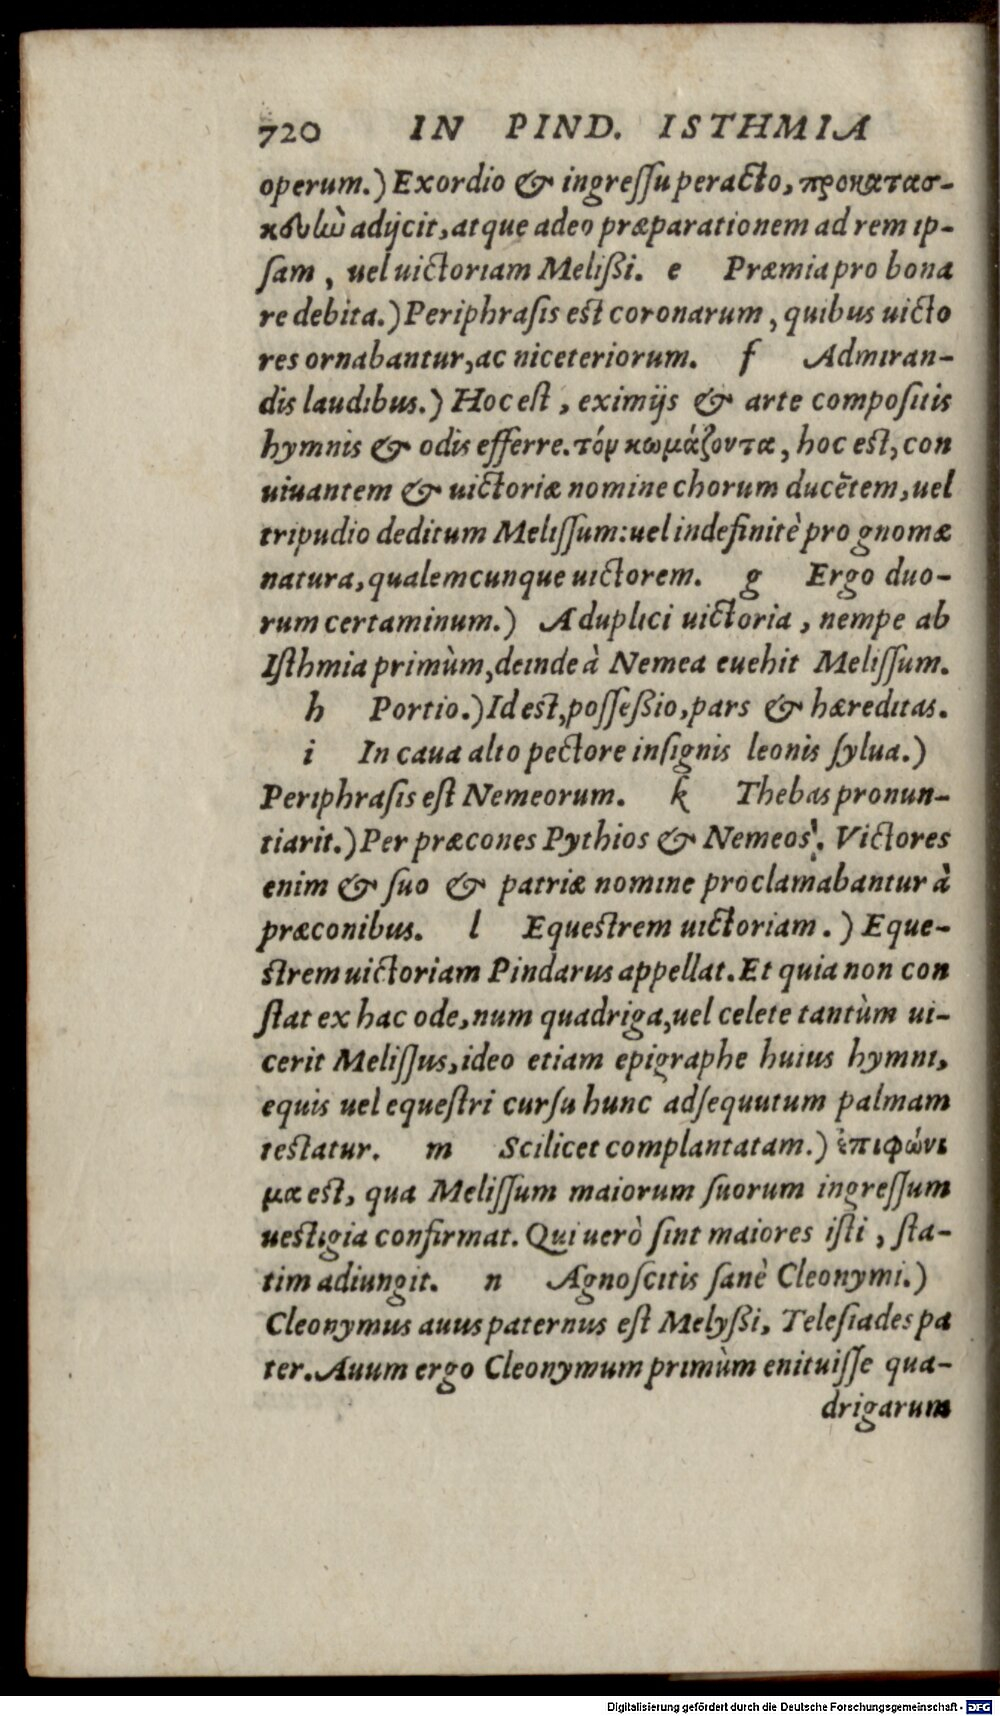 720 IN PIND. ISTHMIA
operum.) Exordio & ingreſſu peracto, προκατασ-
κευὼ adijcit, atque adeo præparationem ad rem ip-
ſam, uel uictoriam Melißi. e Præmia pro bona
re debita.) Periphraſis est coronarum, quibus uicto
res ornabantur, ac niceteriorum. f Admiran-
dis laudibus.) Hoc eſt, eximijs & arte compoſitis
hymnis & odis efferre. τόν κωμάζοντα, hoc est, con
uiuantem & uictoriæ nomine chorum ducẽtem, uel
tripudio deditum Meliſſum: uel indefinitè pro gnomæ
natura, qualemcunque uictorem. g Ergo duo-
rum certaminum.) A duplici uictoria, nempe ab
Iſthmia primùm, deinde à Nemea euehit Meliſſum.
h Portio.) Id est, poſſeßio, pars & hæreditas.
i In caua alto pectore inſignis leonis ſylua.)
Periphraſis eſt Nemeorum. k Thebas pronun-
tiarit.) Per præcones Pythios & Nemeos. Victores
enim & ſuo & patriæ nomine proclamabantur à
præconibus. l Equestrem uictoriam.) Eque-
strem uictoriam Pindarus appellat. Et quia non con
ſtat ex hac ode, num quadriga, uel celete tantùm ui-
cerit Meliſſus, ideo etiam epigraphe huius hymni,
equis uel equeſtri curſu hunc adſequutum palmam
testatur. m Scilicet complantatam.) ἐπιφώνι
μα est, qua Meliſſum maiorum ſuorum ingreſſum
uestigia confirmat. Qui uerò ſint maiores iſti, ſta-
tim adiungit. n Agnoſcitis ſanè Cleonymi.)
Cleonymus auus paternus eſt Melyßi, Teleſiades pa
ter. Auum ergo Cleonymum primùm enituiſſe qua-
drigarum
Digitalisierung gefördert durch die Deutsche Forschungsgemeinschaft - DFG